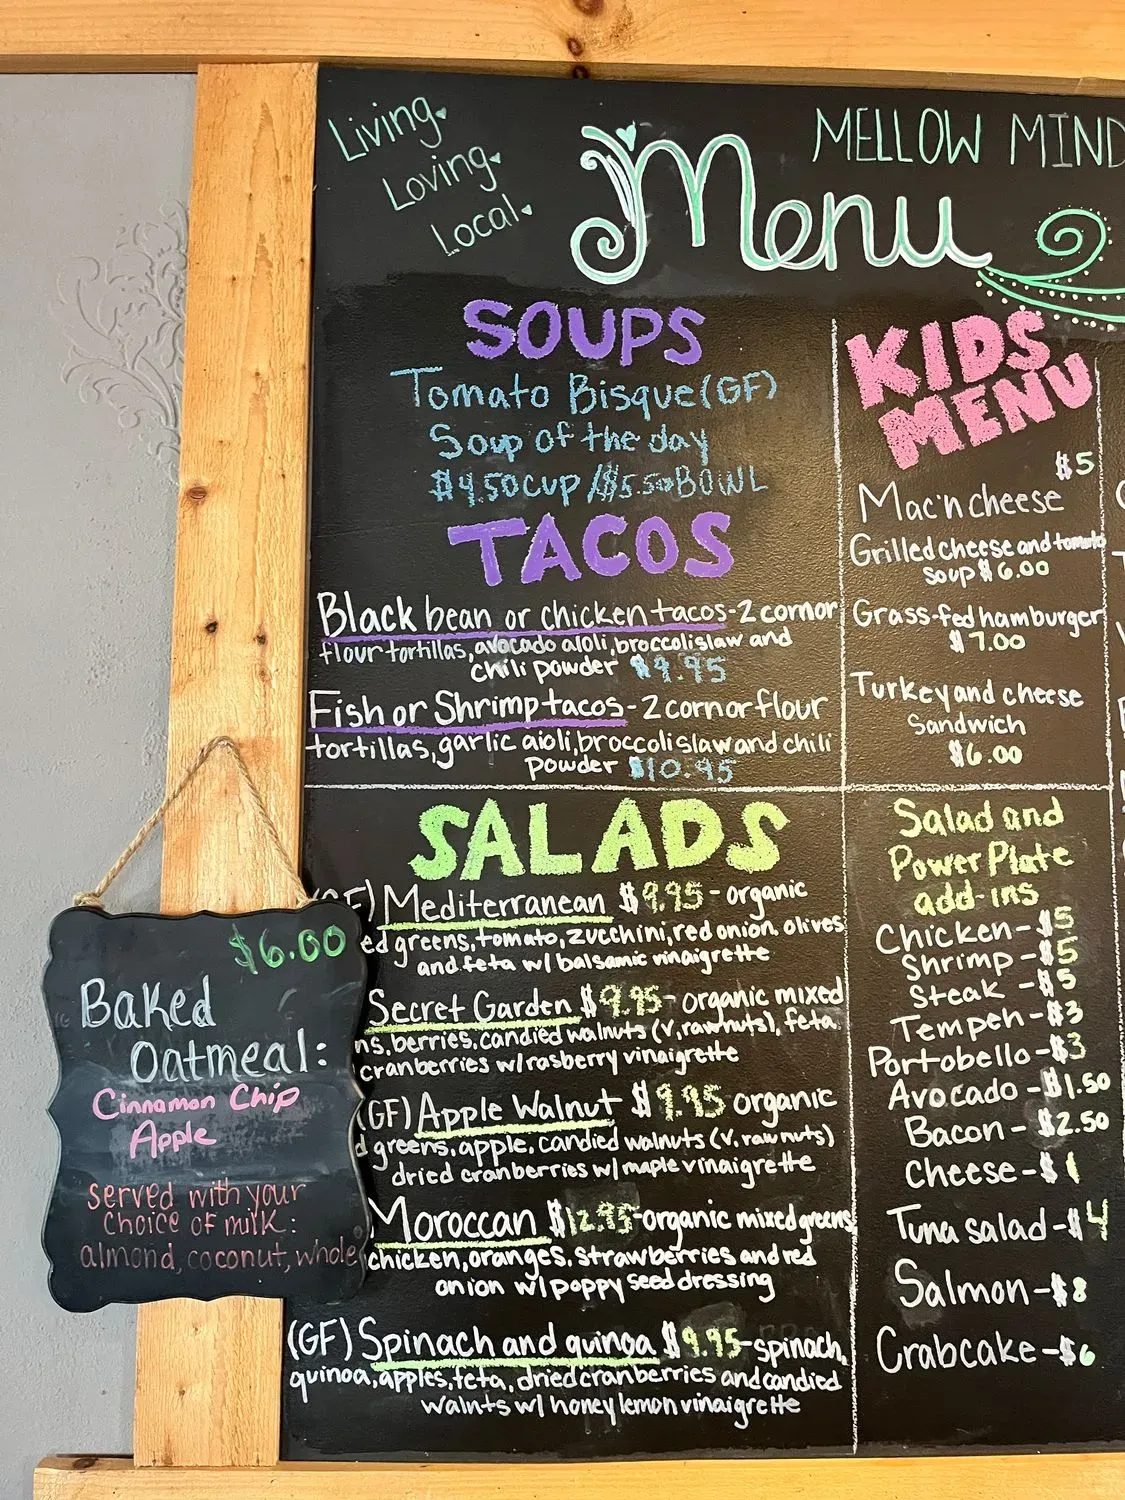 Living
Loving
Local
MELLOW MIND
Menu
SOUPS
Tomato Bisque (GF)
Soup of the day
$4.50 cup / $5.50 BOWL
TACOS
Black bean or chicken tacos - 2 corn or
flour tortillas, avocado aioli, broccoli slaw and
chili powder $9.95
Fish or Shrimp tacos - 2 corn or flour
tortillas, garlic aioli, broccoli slaw and chili
powder $10.95
SALADS
Mediterranean $9.95 - organic
greens, tomato, zucchini, red onion, olives
and feta w/ balsamic vinaigrette
Secret Garden $9.95 - organic mixed
berries, candied walnuts (v, raw nuts), feta,
cranberries w/ rasberry vinaigrette
(GF) Apple Walnut $9.95 organic
greens, apple, candied walnuts (v. raw nuts)
dried cranberries w/ maple vinaigrette
Moroccan $12.95 - organic mixed greens
chicken, oranges, strawberries and red
onion w/ poppy seed dressing
(GF) Spinach and quinoa $9.95 - spinach,
quinoa, apples, feta, dried cranberries and candied
walnts w/ honey lemon vinaigrette
KIDS
MENU
$5
Mac'n cheese
Grilled cheese and tomato
soup $6.00
Grass-fed hamburger
$7.00
Turkey and cheese
sandwich
$6.00
Salad and
Power Plate
add-ins
Chicken - $5
Shrimp - $5
Steak - $5
Tempeh - $3
Portobello - $3
Avocado - $1.50
Bacon - $2.50
Cheese - $1
Tuna salad - $4
Salmon - $8
Crabcake - $6
$6.00
Baked
Oatmeal:
Cinnamon Chip
Apple
served with your
choice of milk:
almond, coconut, whole